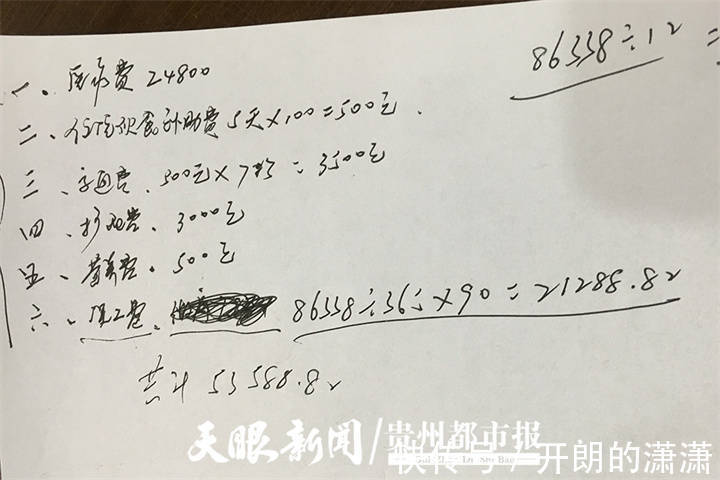 86338÷12 =
一、医疗费 24800
二、住院伙食补助费 5天×100=500元.
三、交通费、500元×7 = 3500元
四、护理费、3000元
五、营养费、500元
六、误工费、 86338÷365×90=21288.82
共计 53588.82
天眼新闻/贵州都市报
快传号 / 开朗的潇潇